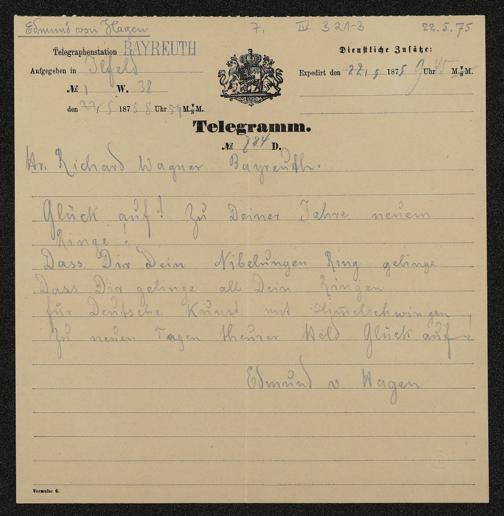 Edmund von Hagen 7. IV 321-3 22.5.75
Telegraphenstation BAYREUTH
Dienstliche Zusätze:
Aufgegeben in Ilfeld
Expedirt den 22/5 1875 9 Uhr 45 M. M.
№ 1 W. 38
den 22/5 1875 8 Uhr 54 M. M.
Telegramm.
№ 784 D.
Hr. Richard Wagner Bayreuth.
Glück auf! Zu Deiner Jahre neuem
Ringe!
Dass Dir Dein Nibelungen Ring gelinge
Dass Dir gelinge all Dein Ringen
für Deutsche Kunst mit
Zu neuen Tagen theurer Held Glück auf!
Edmund v Hagen
Formular 6.